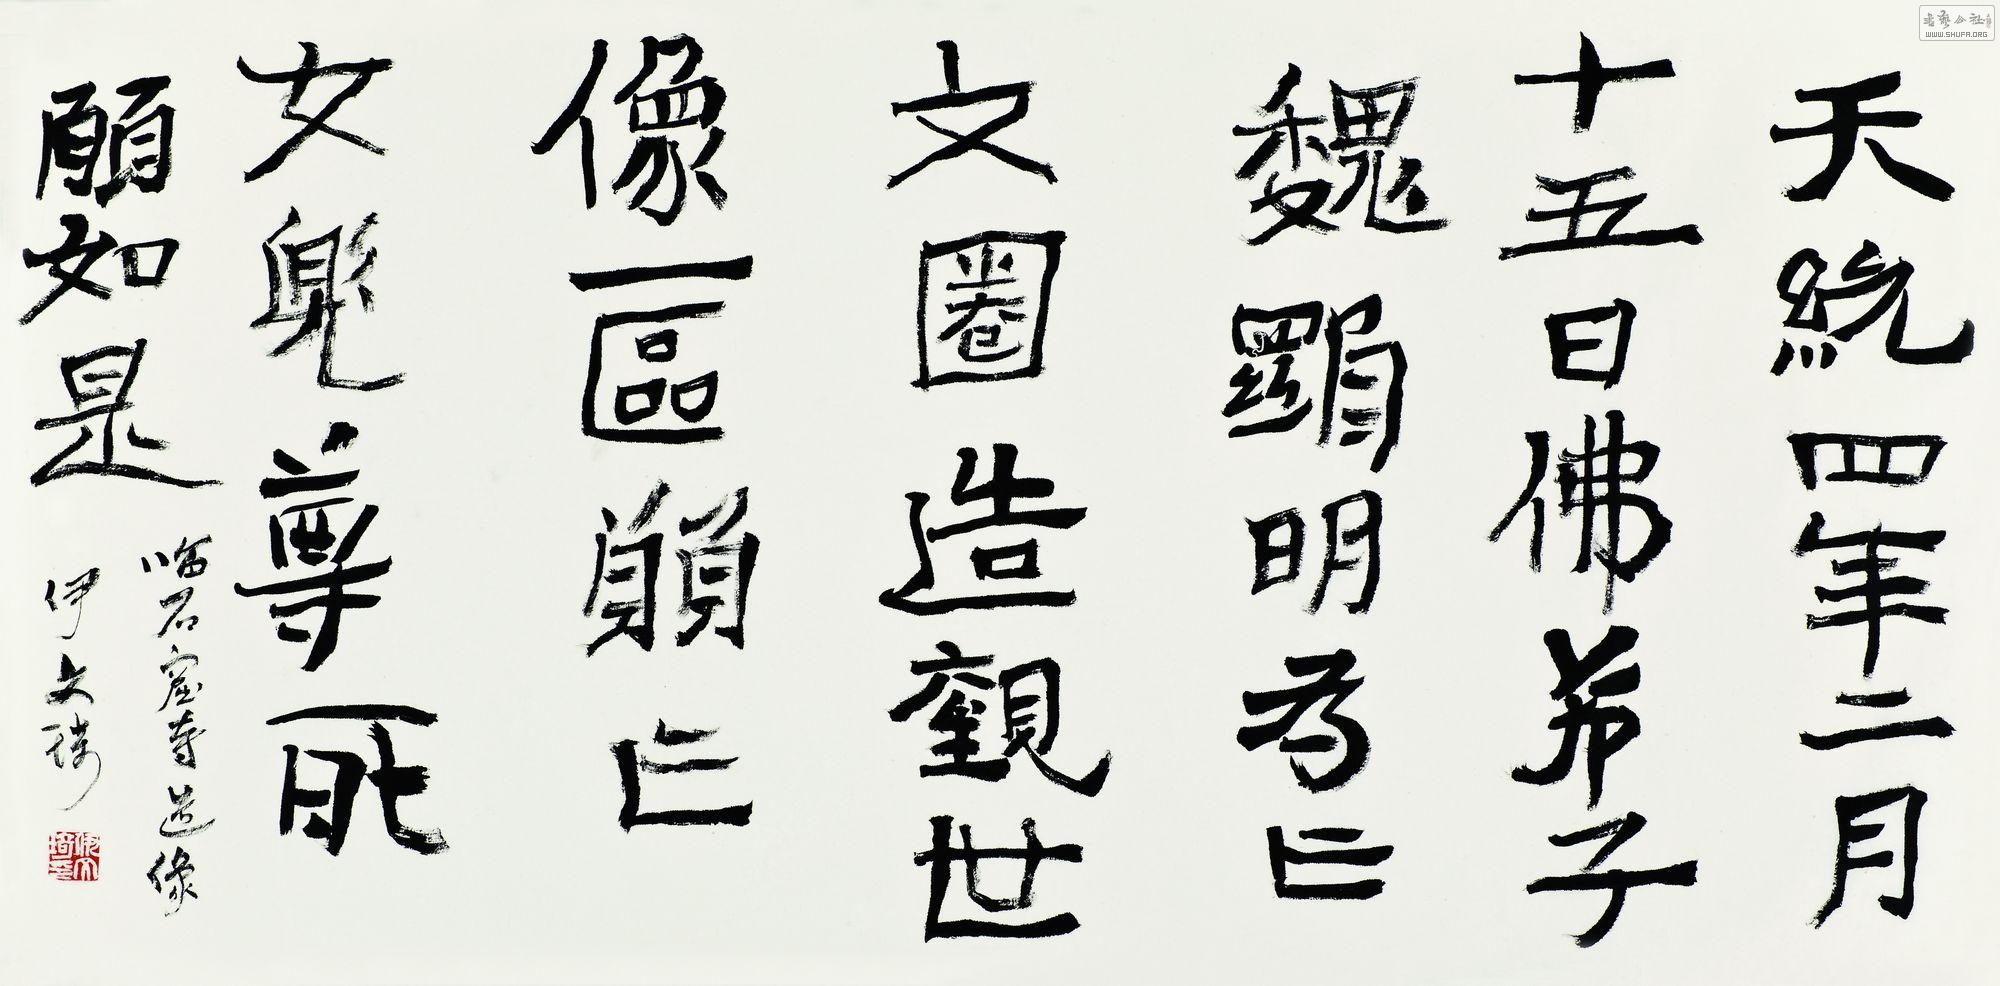 天統四年二月
十五日佛苐子
魏顯明為亡
文圈造觀世
像一區願亡
女兜尊
願如是
臨石窟寺造像
伊文琦
书艺公社
WWW.SHUFA.ORG